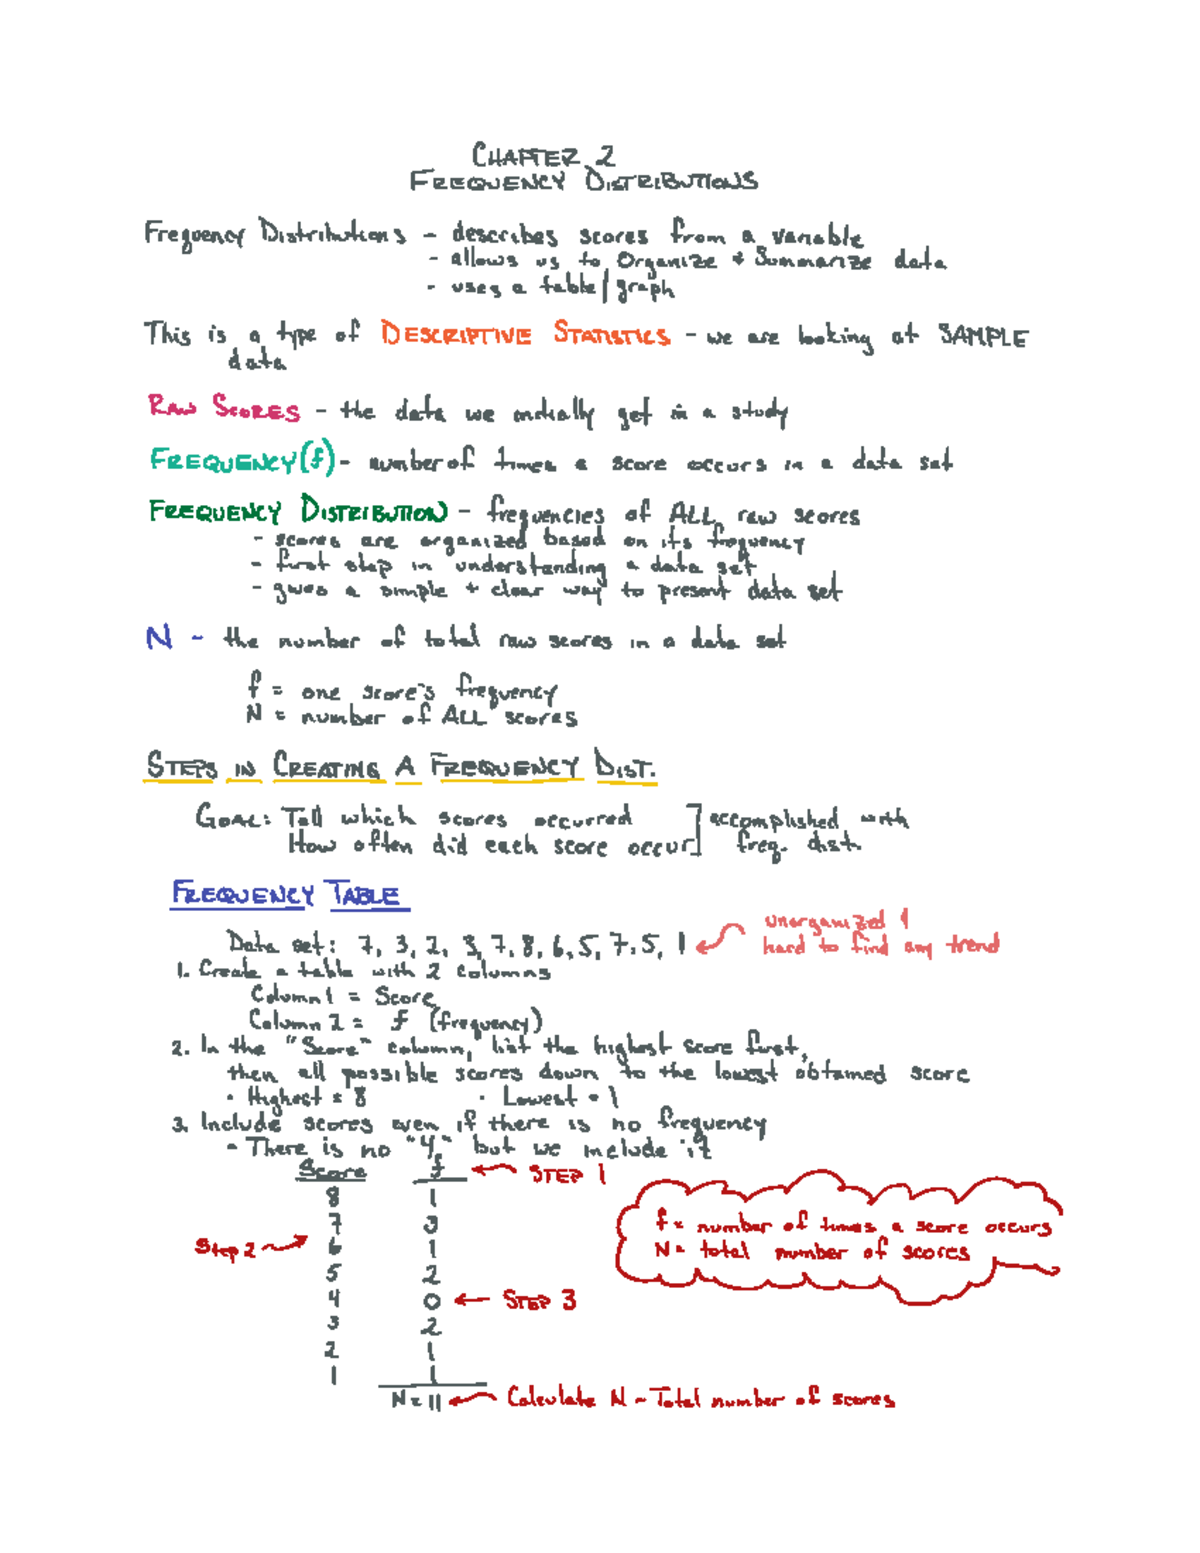 CHAPTER 2
FREQUENCY DISTRIBUTIONS
Frequency Distributions - describes scores from a variable
- allows us to Organize + Summarize data
- uses a table/graph
This is a type of DESCRIPTIVE STATISTICS - we are looking at SAMPLE
data
RAW SCORES - the data we initially get in a study
FREQUENCY (f) - number of times a score occurs in a data set
FREQUENCY DISTRIBUTION - frequencies of ALL raw scores
- scores are organized based on its frequency
- first step in understanding a data set
- gives a simple + clear way to present data set
N - the number of total raw scores in a data set
f = one score's frequency
N = number of ALL scores
STEPS IN CREATING A FREQUENCY DIST.
GOAL: Tell which scores occurred ] accomplished with
How often did each score occur ] freq. dist.
FREQUENCY TABLE
unorganized &
Data set: 7, 3, 2, 3, 7, 8, 6, 5, 7, 5, 1 hard to find any trend
1. Create a table with 2 columns
Column 1 = Score
Column 2 = f (frequency)
2. In the "Score" column, list the highest score first,
then all possible scores down to the lowest obtained score
• Highest = 8 • Lowest = 1
3. Include scores even if there is no frequency
- There is no "4" but we include it
Score f ← STEP 1
8 1
7 3
Step 2 → 6 1
5 2
4 0 ← STEP 3
3 2
2 1
1 1
N = 11 ← Calculate N - Total number of scores
f = number of times a score occurs
N = total number of scores